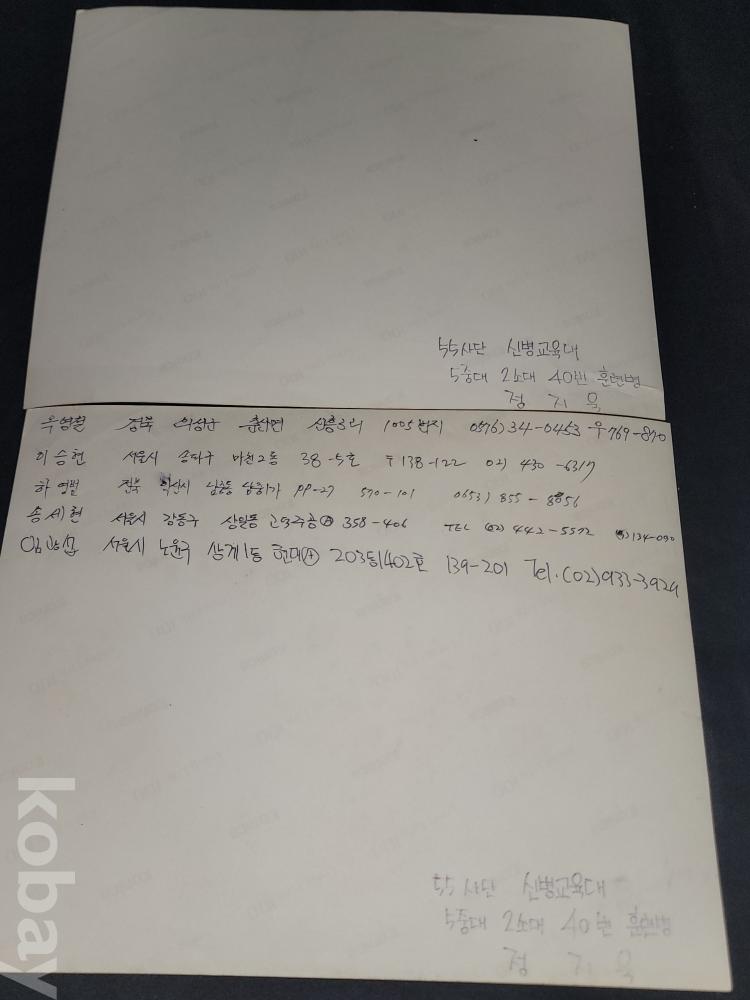 55사단 신병교육대
5중대 2소대 40번 훈련병
정 기 욱
우영철 경북 의성군 춘산면 신흥3리 1005번지 0576)34-0453 우769-870
이승현 서울시 송파구 마천2동 38-5호 〒138-122 02) 430-6317
하영범 전북 익산시 남중동 남중1가 99-27 570-101 0653) 855-8856
송세현 서울시 강동구 상일동 고덕주공Ⓐ 358-406 TEL (02) 442-5572 우)134-090
서울시 노원구 상계1동 현대Ⓐ 203동1402호 139-201 Tel.(02)933-3929
55사단 신병교육대
5중대 2소대 40번 훈련병
정 기 욱
kobay